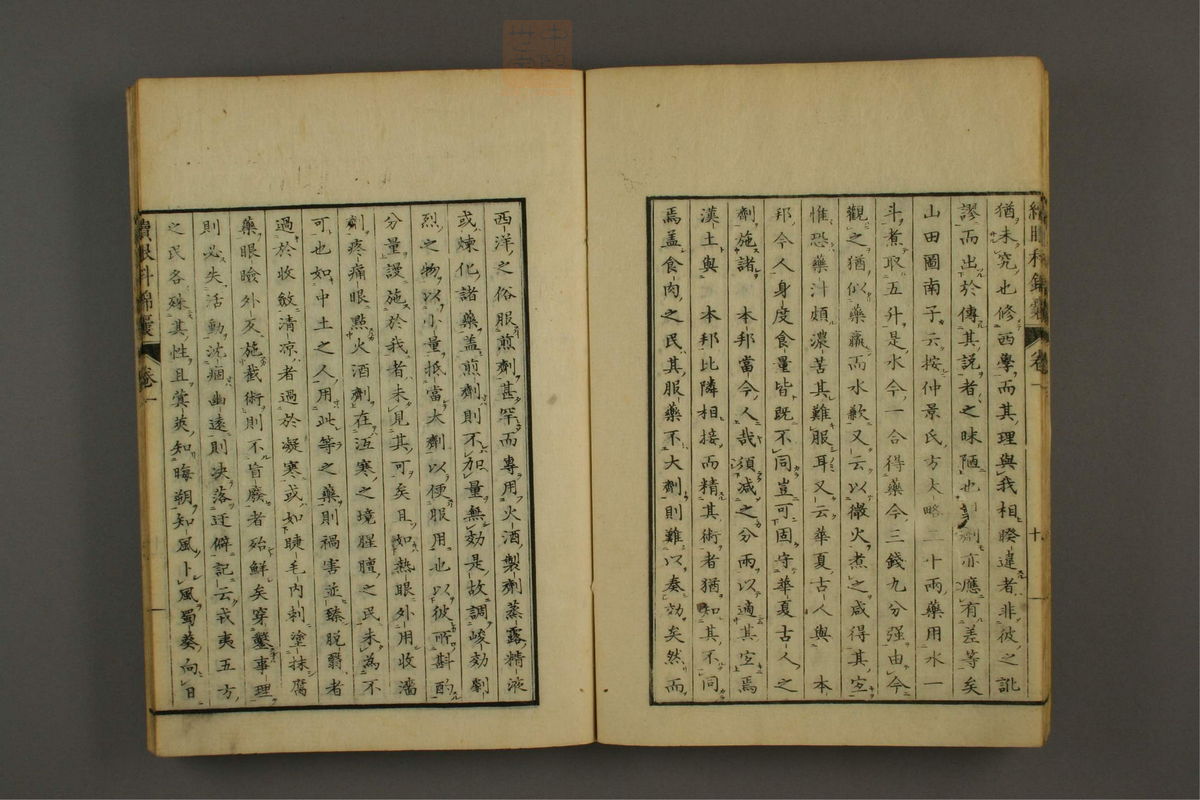 續眼科錦囊 卷一 十
猶未究也修西學而其理與我相暌違者非彼之訛
謬而出於傳其說者之昧陋也 劑亦應有差等矣
山田圖南子云按仲景氏方大略三十兩藥用水一
斗煮取五升是水今一合得藥今三錢九分强由今
觀之猶似藥羸而水歉又云以微火煮之咸得其宜
惟恐藥汁頗濃苦其難服耳又云華夏古人與 本
邦今人身度食量皆既不同豈可固守華夏古人之
劑施諸 本邦當今人哉須減之分兩以適其宜焉
漢土與 本邦比隣相接而精其術者猶知其不同
焉盖食肉之民其服藥不大劑則難以奏効矣然而
西洋之俗服煎劑甚罕而專用火酒製劑蒸露精液
或煉化諸藥盖煎劑則不加量無効是故調峻効劇
烈之物以小量抵當大劑以便服用也以彼所斟酌
分量謾施於我者未見其可矣且如熱眼外用收濇
劑疼痛眼點火酒劑在沍寒之境腥膻之民未爲不
可也如中土之人用此等之藥則禍害並臻脫翳者
過於收斂清凉者過於凝寒或如睫毛内刺塗抹腐
藥眼瞼外反施截術則不旨廢者殆鮮矣穿鑿事理
則必失活動沈痼幽遠則决落迂僻記云戎夷五方
之民各殊其性且蓂莢知晦朔知風卜風蜀葵向日
續眼科錦囊 卷一